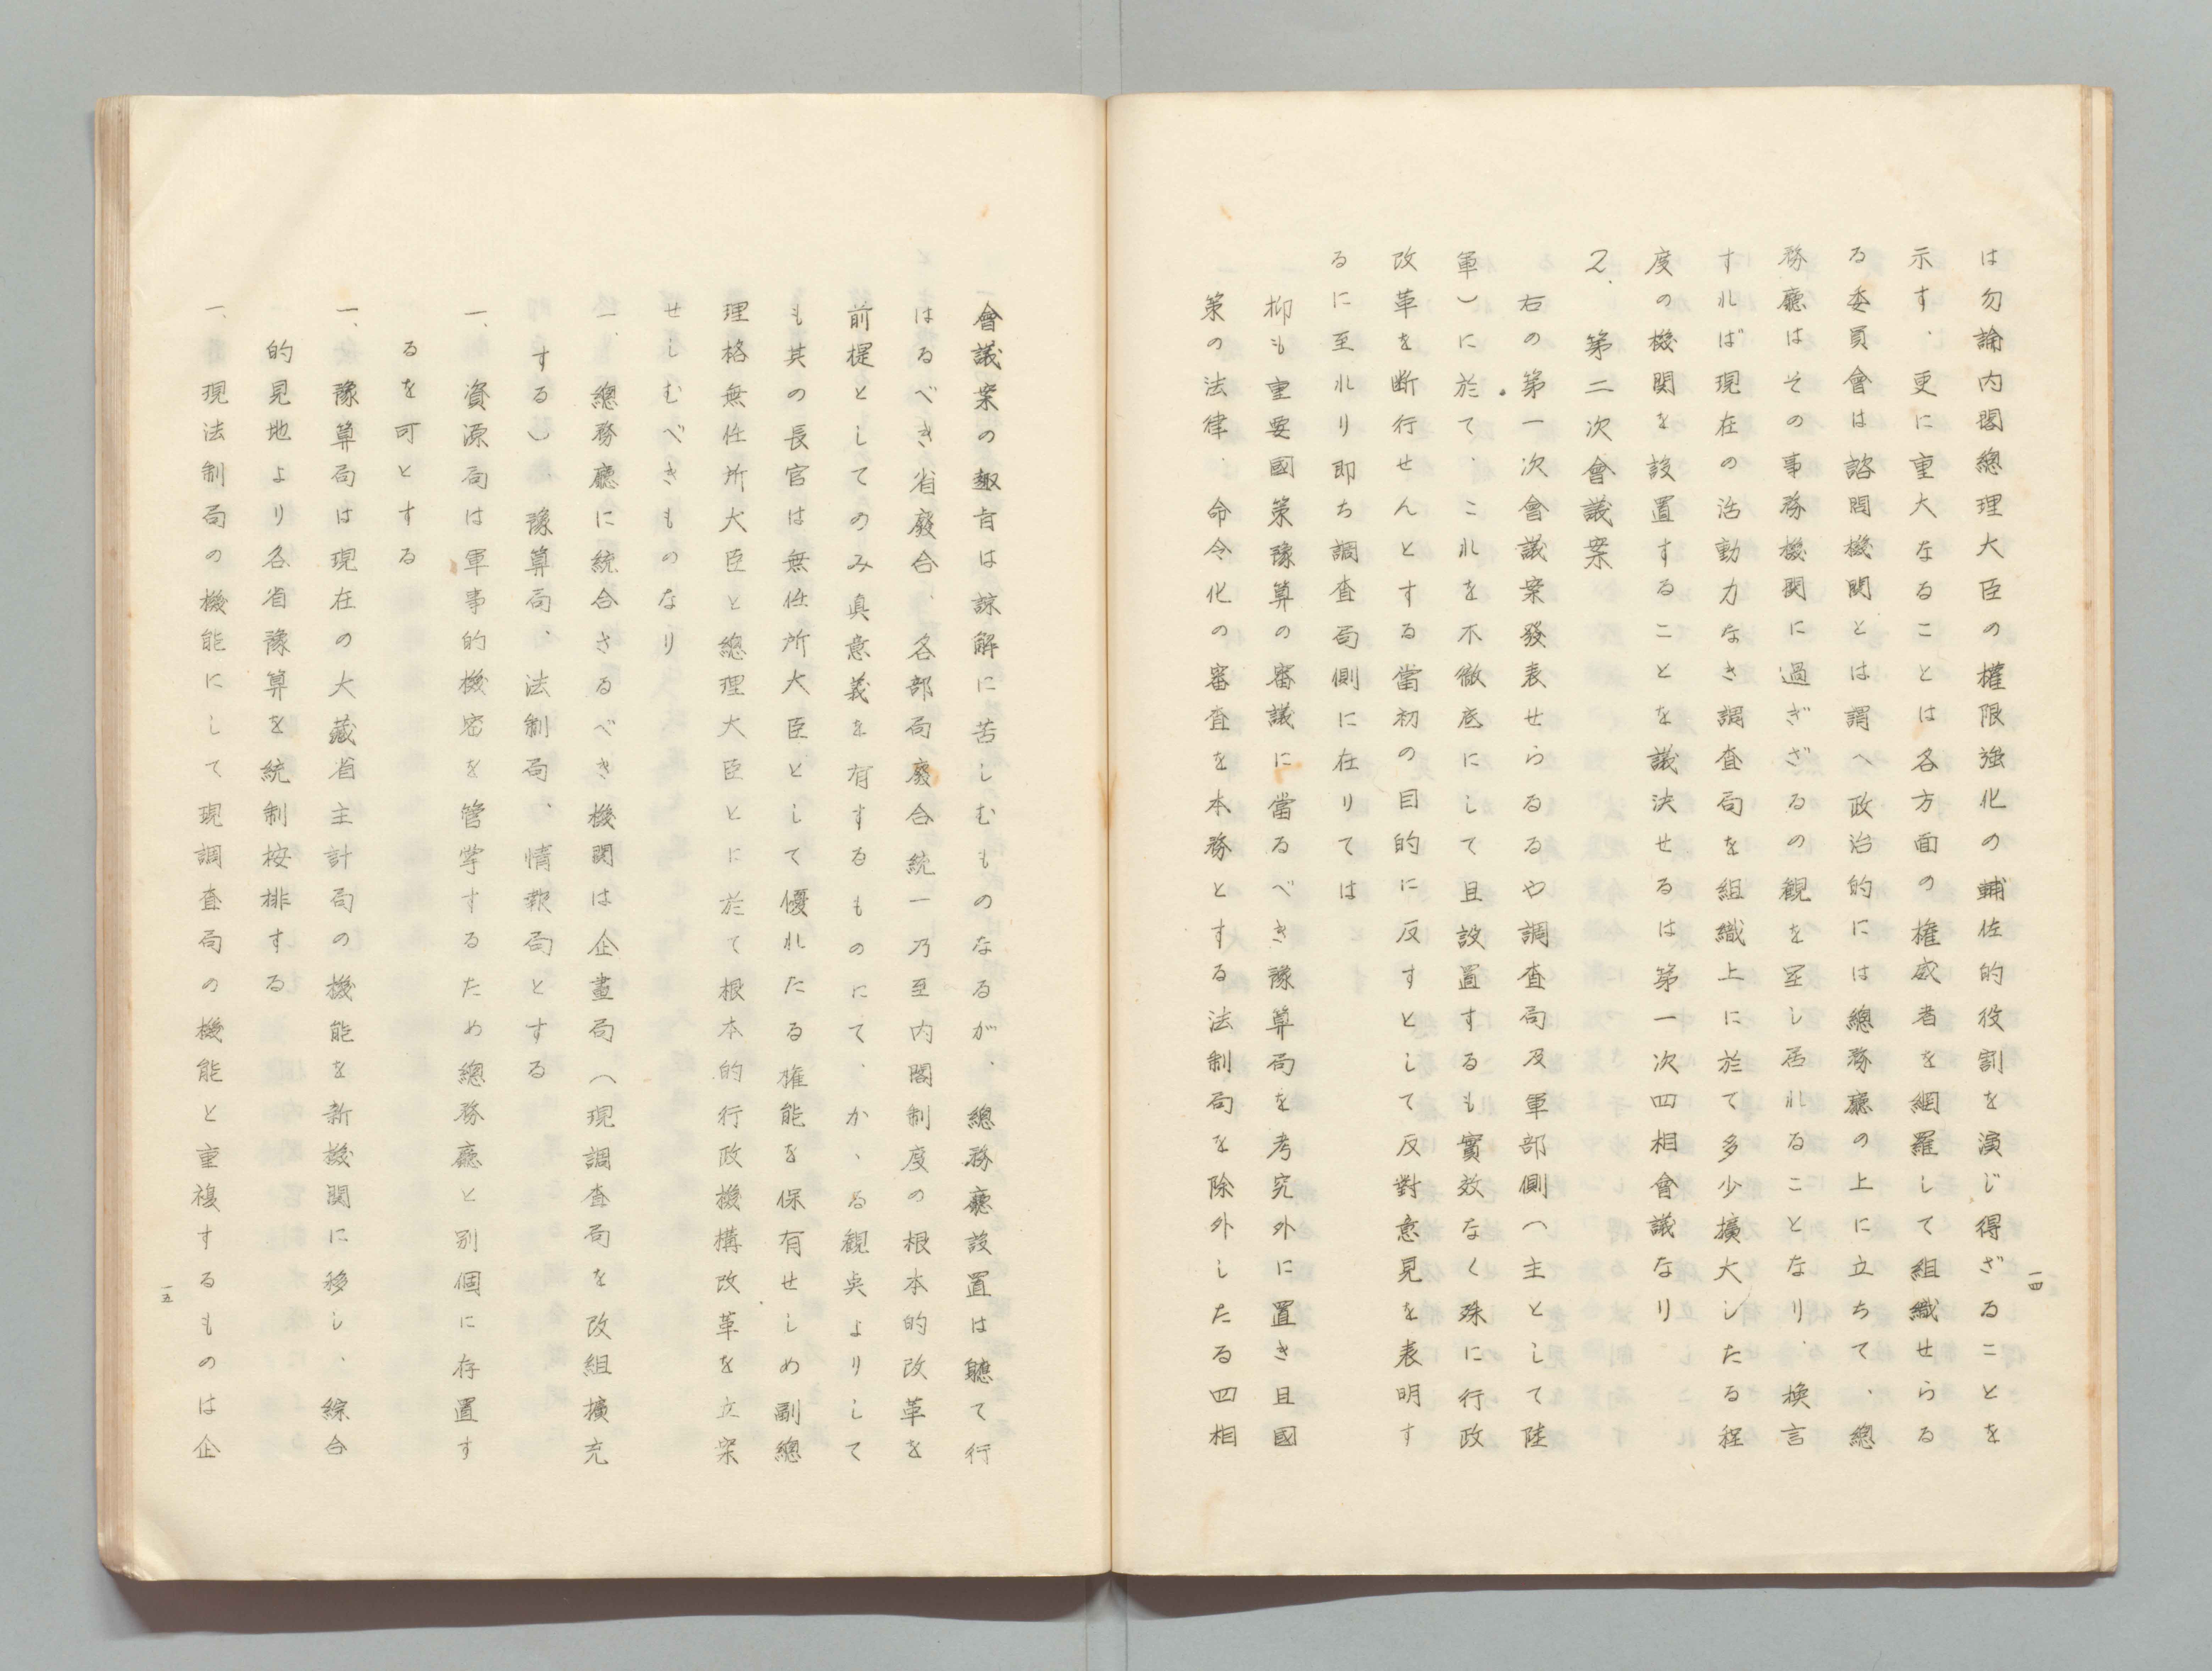 は勿論内閣總理大臣の權限強化の輔佐的役割を演じ得ざることを
示す、更に重大なることは各方面の権威者を網羅して組織せらる
る委員會は諮問機関とは謂へ政治的には總務廳の上に立ちて、總
務廳はその事務機関に過ぎざるの観を呈し居れることなり、換言
すれば現在の活動力なき調査局を組織上に於て多少擴大したる程
度の機関を設置することを議決せるは第一次四相會議なり
2. 第二次會議案
右の第一次會議案發表せらるるや調査局及軍部側（主として陸
軍）に於て、これを不徹底にして且設置するも實效なく殊に行政
改革を断行せんとする當初の目的に反すとして反對意見を表明す
るに至れり即ち調査局側に在りては
抑も重要國策豫算の審議に當るべき豫算局を考究外に置き且國
策の法律、命令化の審査を本務とする法制局を除外したる四相
一四
會議案の趣旨は諒解に苦しむものなるが、總務廳設置は聽て行
はるべき省廢合、各部局廢合統一乃至内閣制度の根本的改革を
前提としてのみ眞意義を有するものにて、かゝる観点よりして
も其の長官は無任所大臣として優れたる権能を保有せしめ副總
理格無任所大臣と總理大臣とに於て根本的行政機構改革を立案
せしむべきものなり
一、總務廳に統合さるべき機関は企畫局（現調査局を改組擴充
する）、豫算局、法制局、情報局とする
一、資源局は軍事的機密を管掌するため總務廳と別個に存置す
るを可とする
一、豫算局は現在の大藏省主計局の機能を新機関に移し、綜合
的見地より各省豫算を統制按排する
一、現法制局の機能にして現調査局の機能と重複するものは企
一五